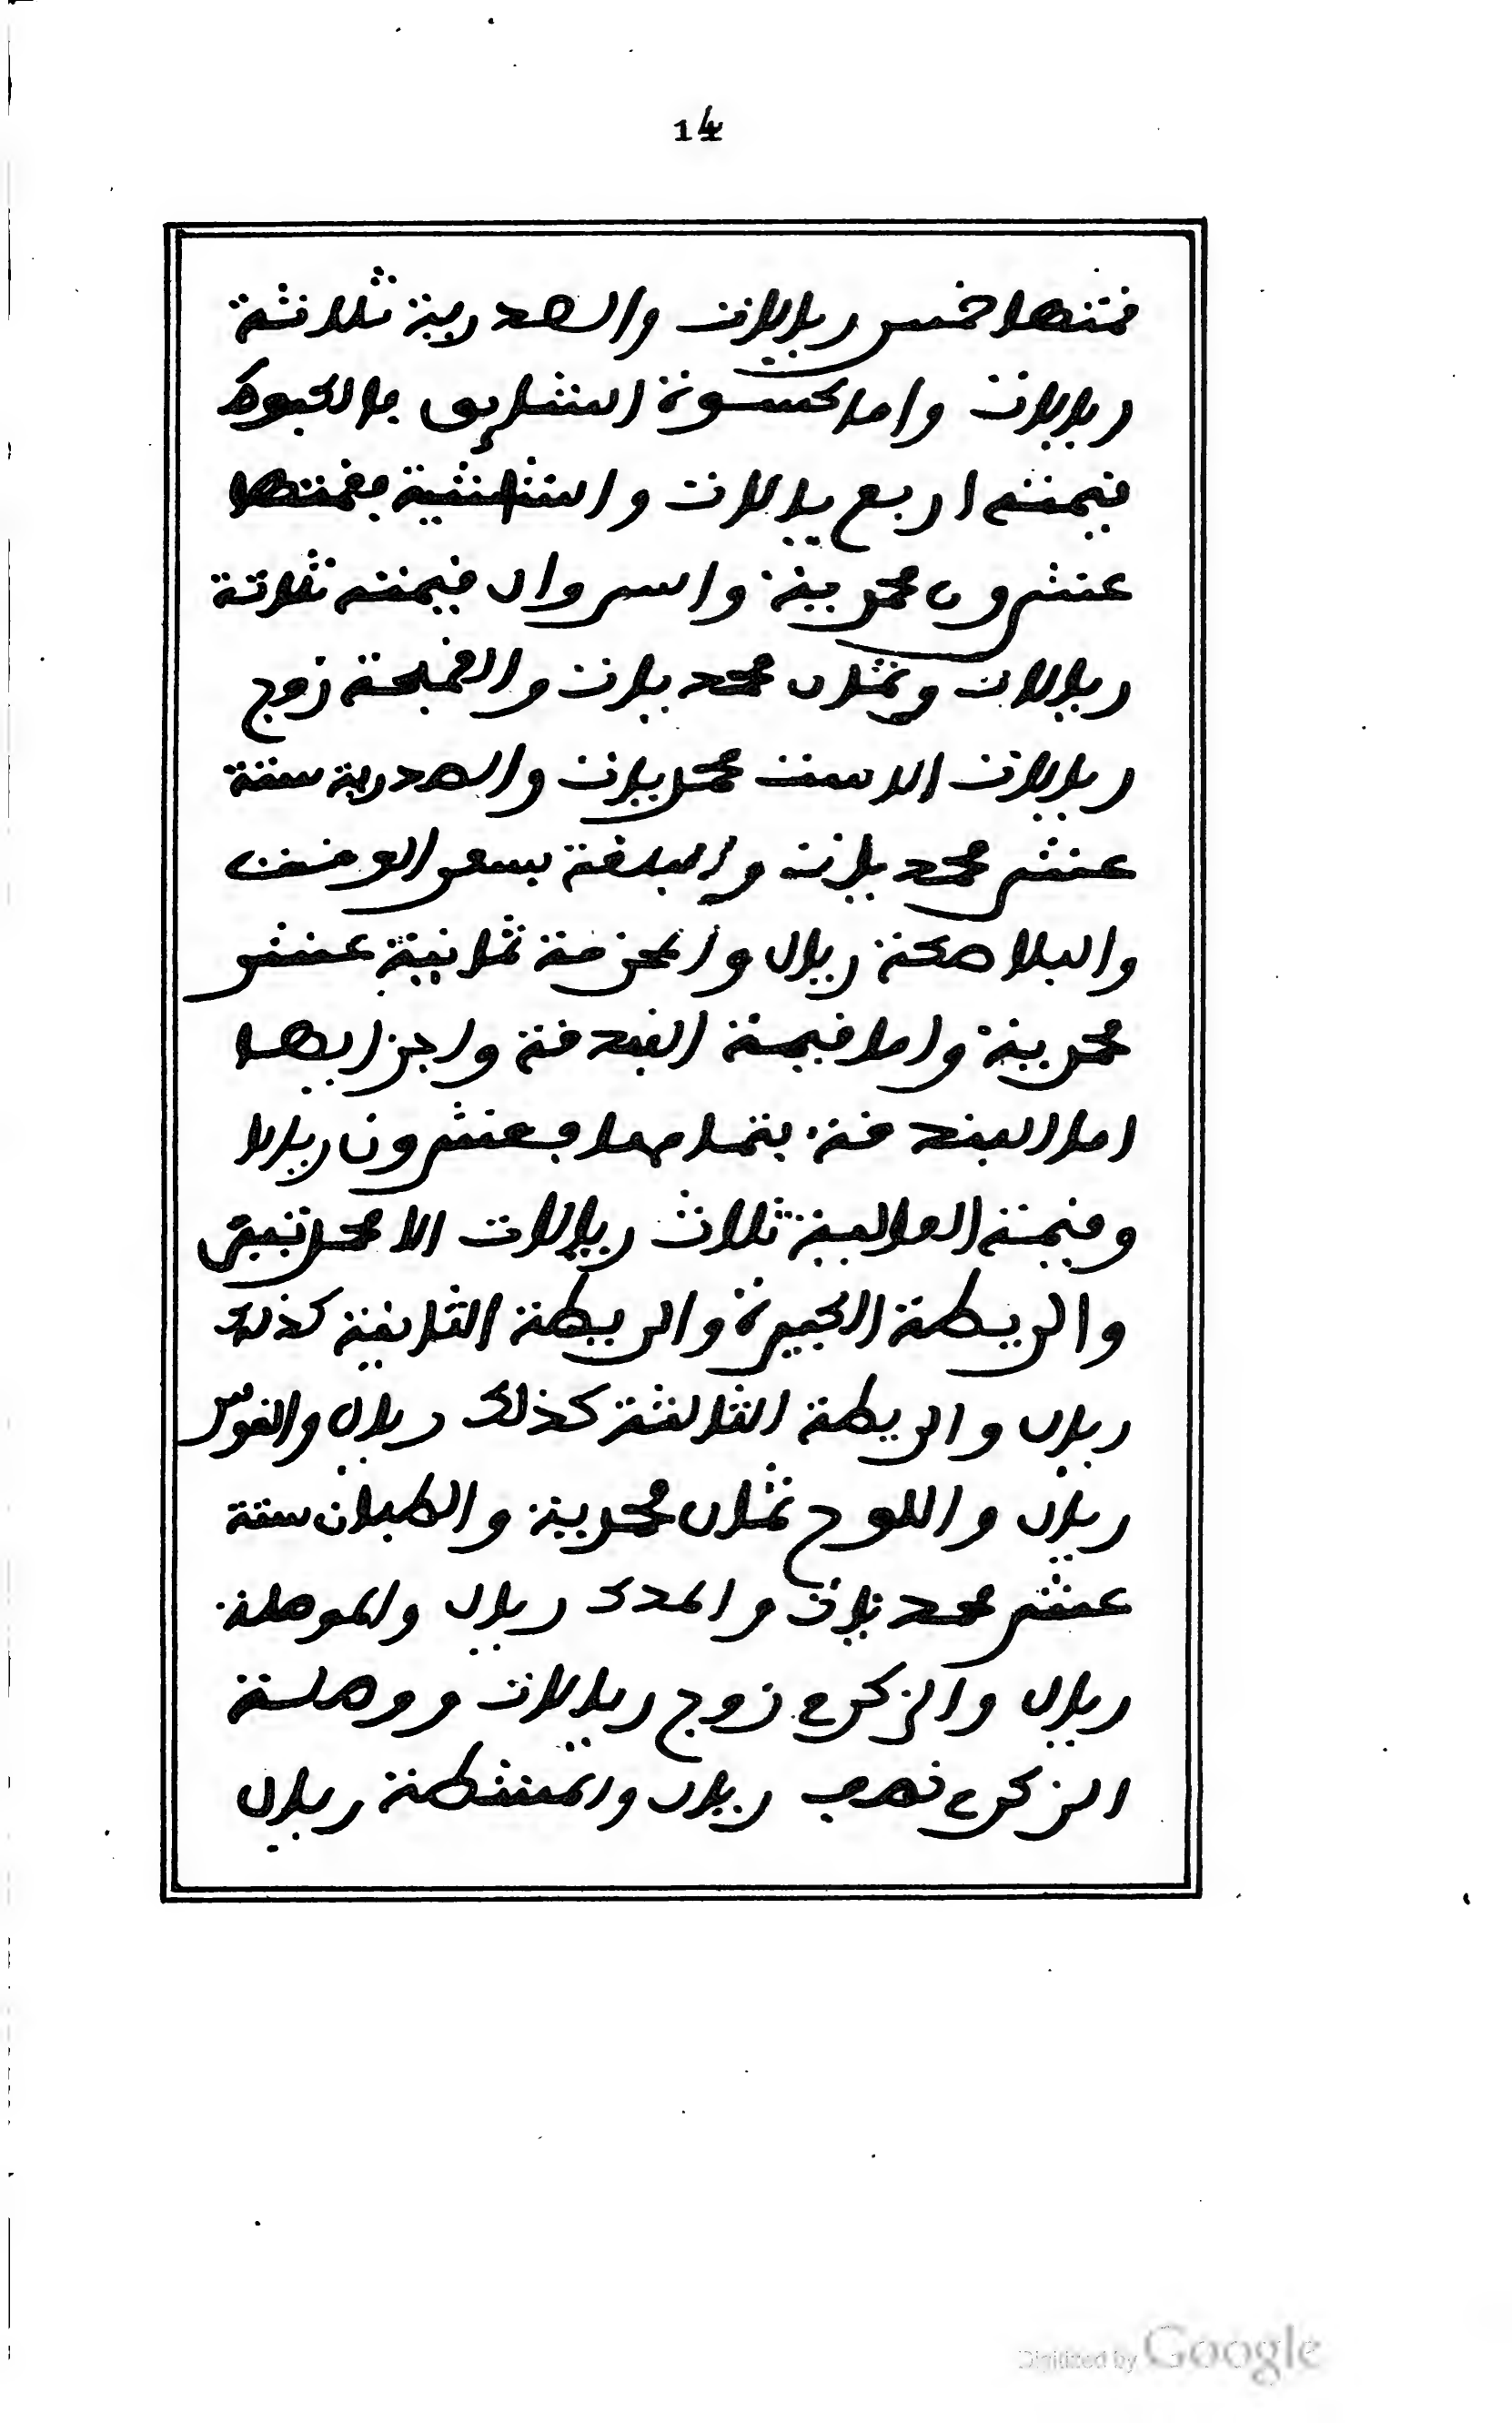 14
فمتها خمس ريالات والصدرية ثلاثة
ريالات واما كسوة الشايق بالكبوط
فيمته اربع يالات والشاشية بفمتها
عشرون محربية والسروال فيمته ثلاثة
ريالات وثمان محمديات والفمجة زوج
ريالات الا ست محربيات والصدرية ستة
عشر محمديات والبلغة بسعر الوفت
والبلاصكة ريال والحزمة ثمانية عشر
محربية واما فيمة البندفة واجزايها
اما البندفة بتمامها بعشرون ريالا
وفيمة العالية ثلاث ريالات الا محراتين
والربطة الكبيرة والربطة الثانية كذلك
ريال والربطة الثالثة كذلك ريال والفوس
ريال واللوح ثمان محربية والطبان ستة
عشر محمديات والمدك ريال والموصلة
ريال والزكرى زوج ريالات ووصلة
الزكرى نصف ريال والمشطة ريال
Digitized by Google